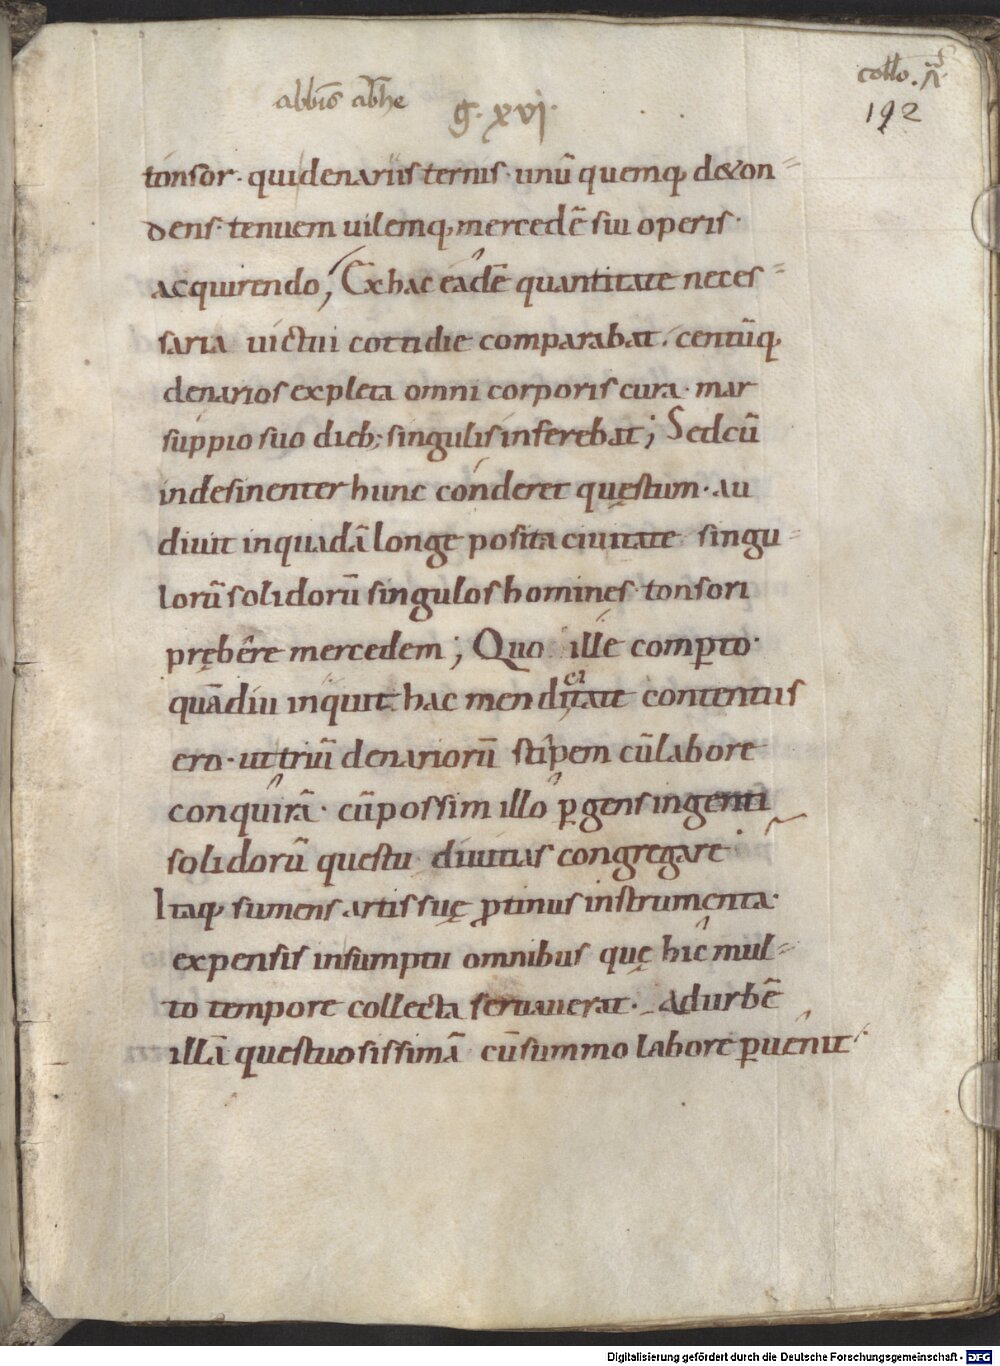 collo. .x.
192
abbis abhe g. xvi.
tonsor· qui denariis ternis· unū quemq; de&on
dens· tenuem uilemq; mercedē sui operis·
acquirendo; Ex hac eadē quantitate neces
saria uictui cottidie comparabat· centūq;
denarios expleta omni corporis cura· mar
suppio suo dieb; singulis inferebat; Sed cū
indesinenter hunc conderet quęstum· au
diuit in quadā longe posita ciuitate singu
lorū solidorū singulos homines tonsori
prębere mercedem; Quo ille comꝑto·
quādiu inquit hac mendicitate contentus
ero· ut triū denariorū stipem cū labore
conquirā· cū possim illo ꝑgens ingenti
solidorū questu diuitias congregare
Itaq; sumens artis suę ꝓtinus instrumenta·
expensis insumptu omnibus quę hic mul
to tempore collecta seruauerat· Ad urbē
illā questuosissimā cū summo labore ꝑuenit·
Digitalisierung gefördert durch die Deutsche Forschungsgemeinschaft - DFG